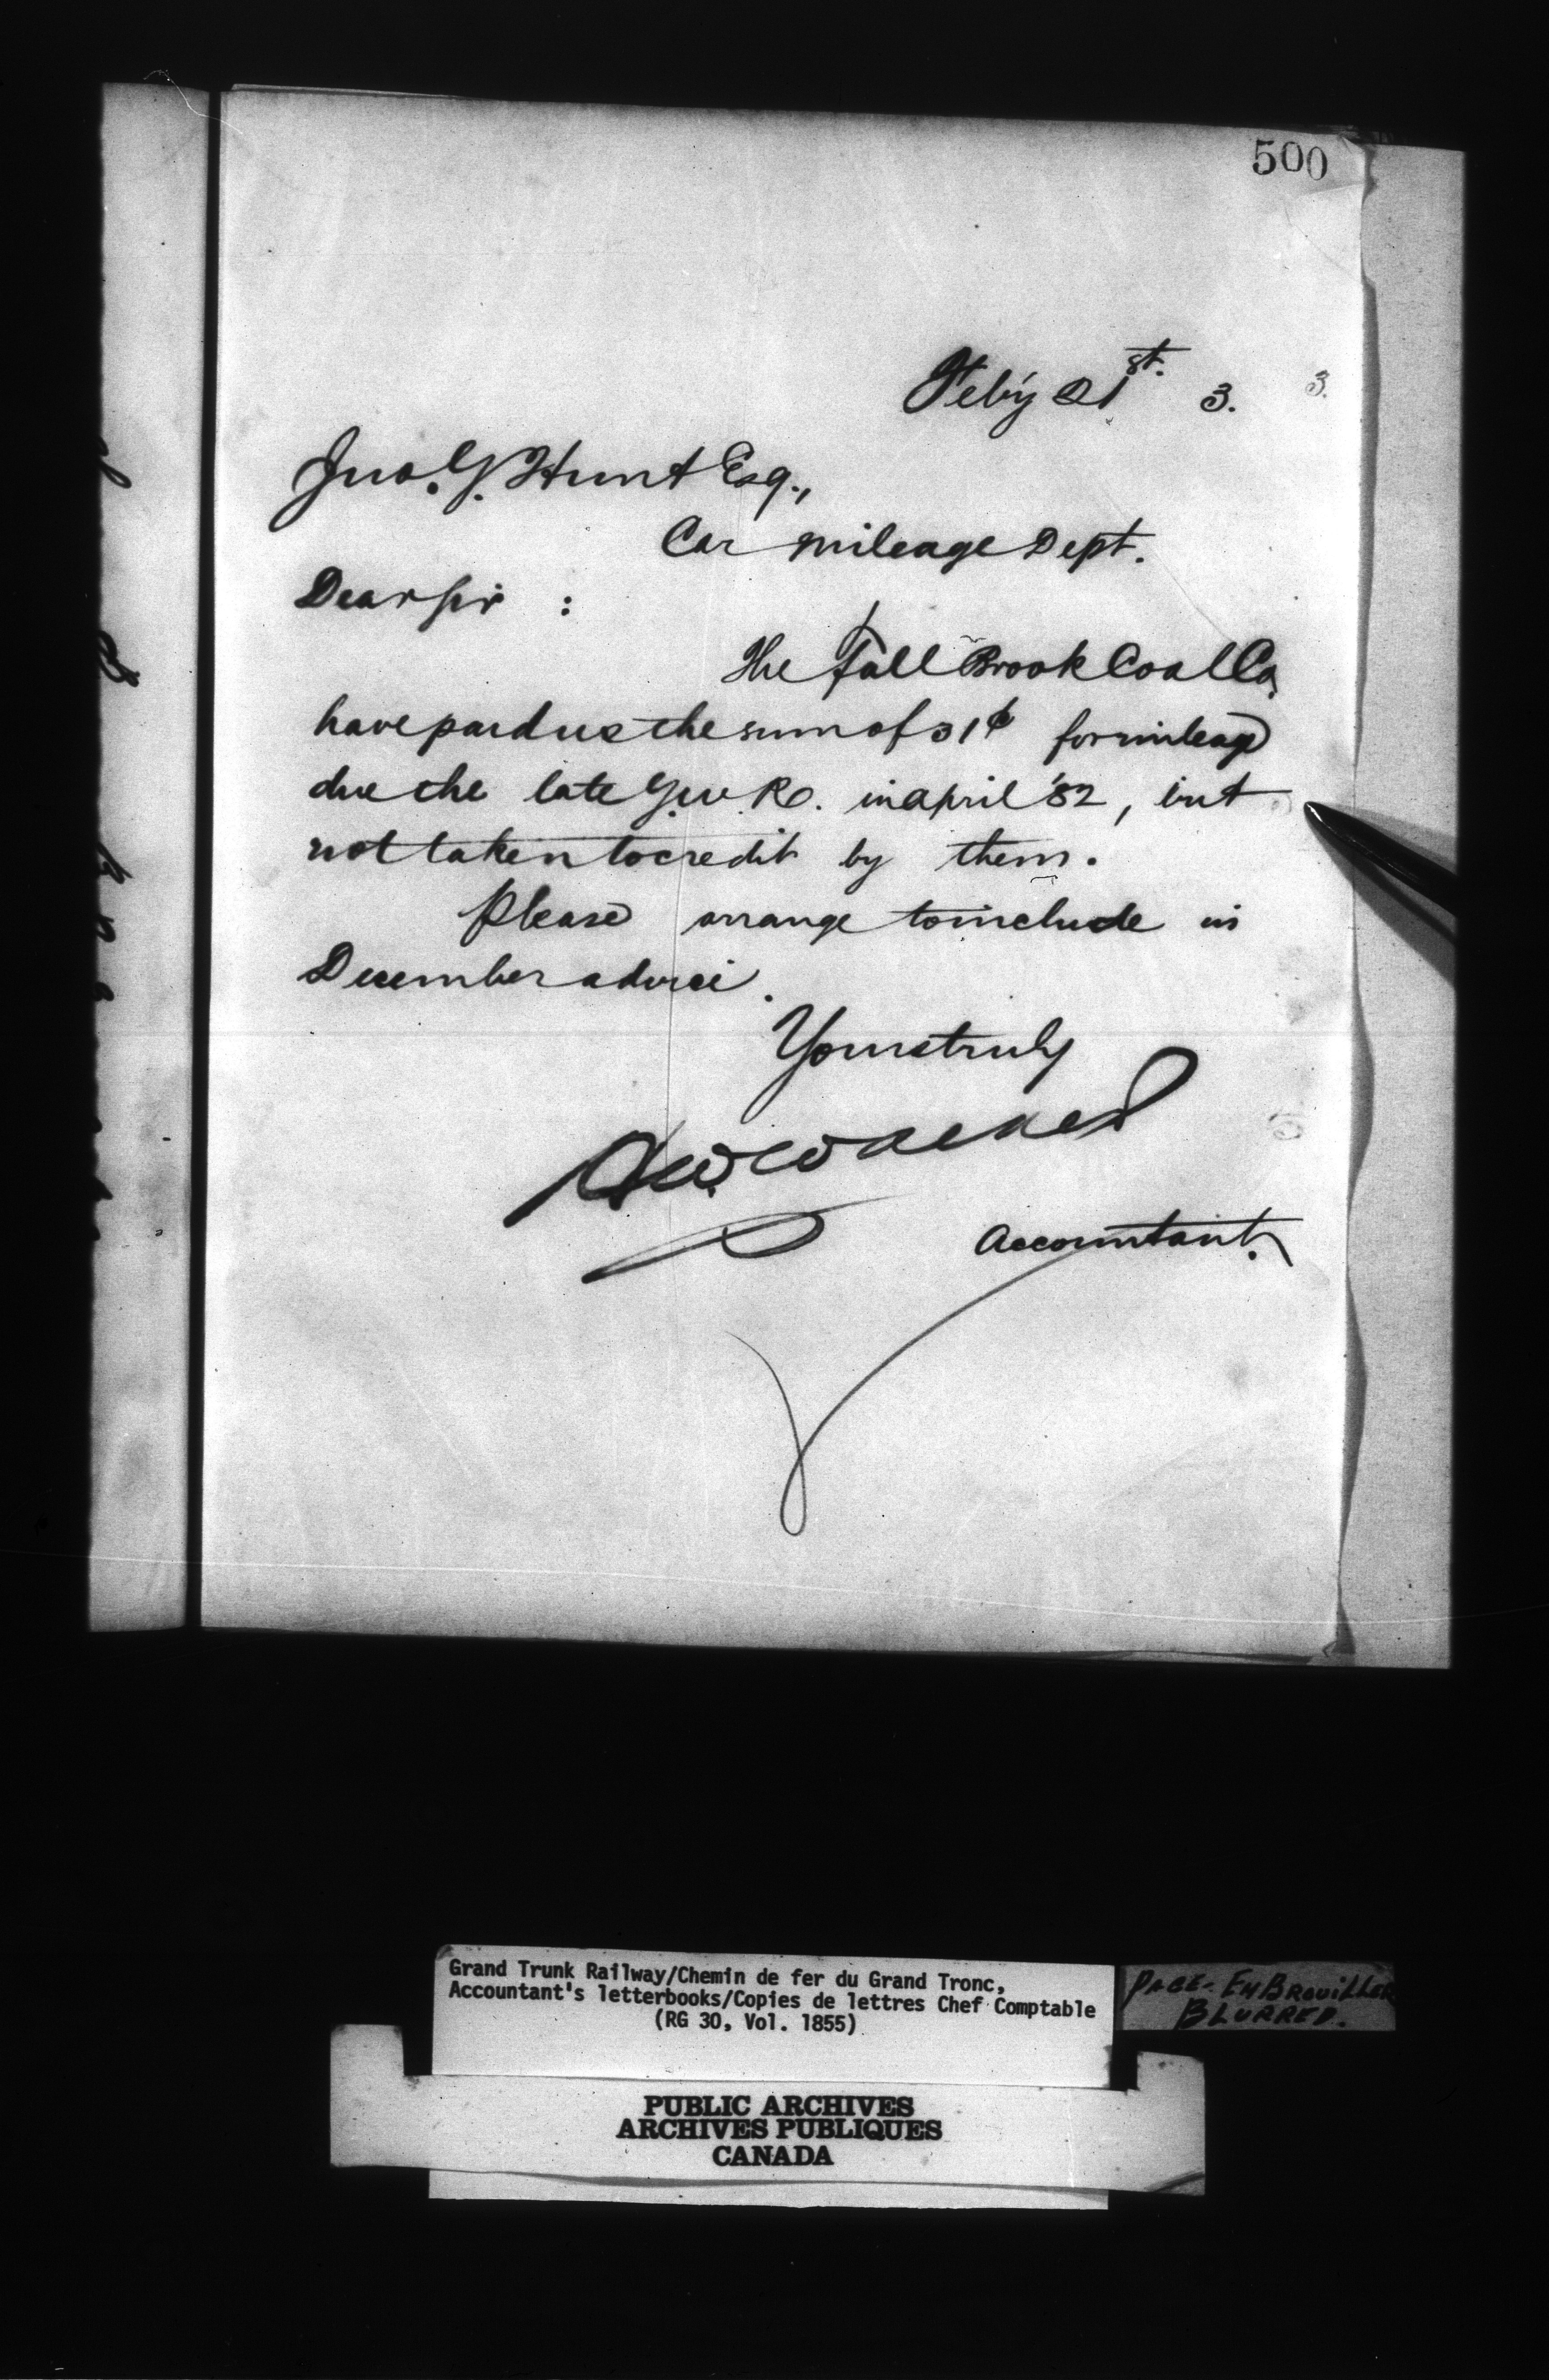 500
Feb'y 21st. 3. 3.
Jno. G. Hunt Esq.,
Car Mileage Dept.
Dear Sir :
The Fall Brook Coal Co.
have paid us the sum of 31¢ for mileage
due the late G.W.R. in April '82, but
not taken to credit by them.
Please arrange to include in
December advice.
Yours truly
Accountant.
Grand Trunk Railway/Chemin de fer du Grand Tronc,
Accountant's letterbooks/Copies de lettres Chef Comptable
(RG 30, Vol. 1855)
PAGE - EMBROUILLER
BLURRED.
PUBLIC ARCHIVES
ARCHIVES PUBLIQUES
CANADA